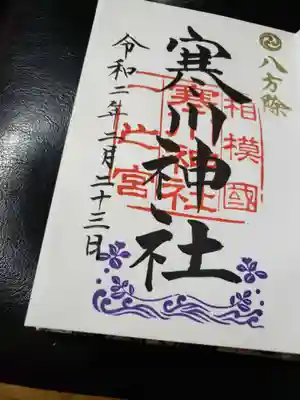 八方除
寒川神社
相模國
寒川神社
一之宮
令和二年二月二十三日